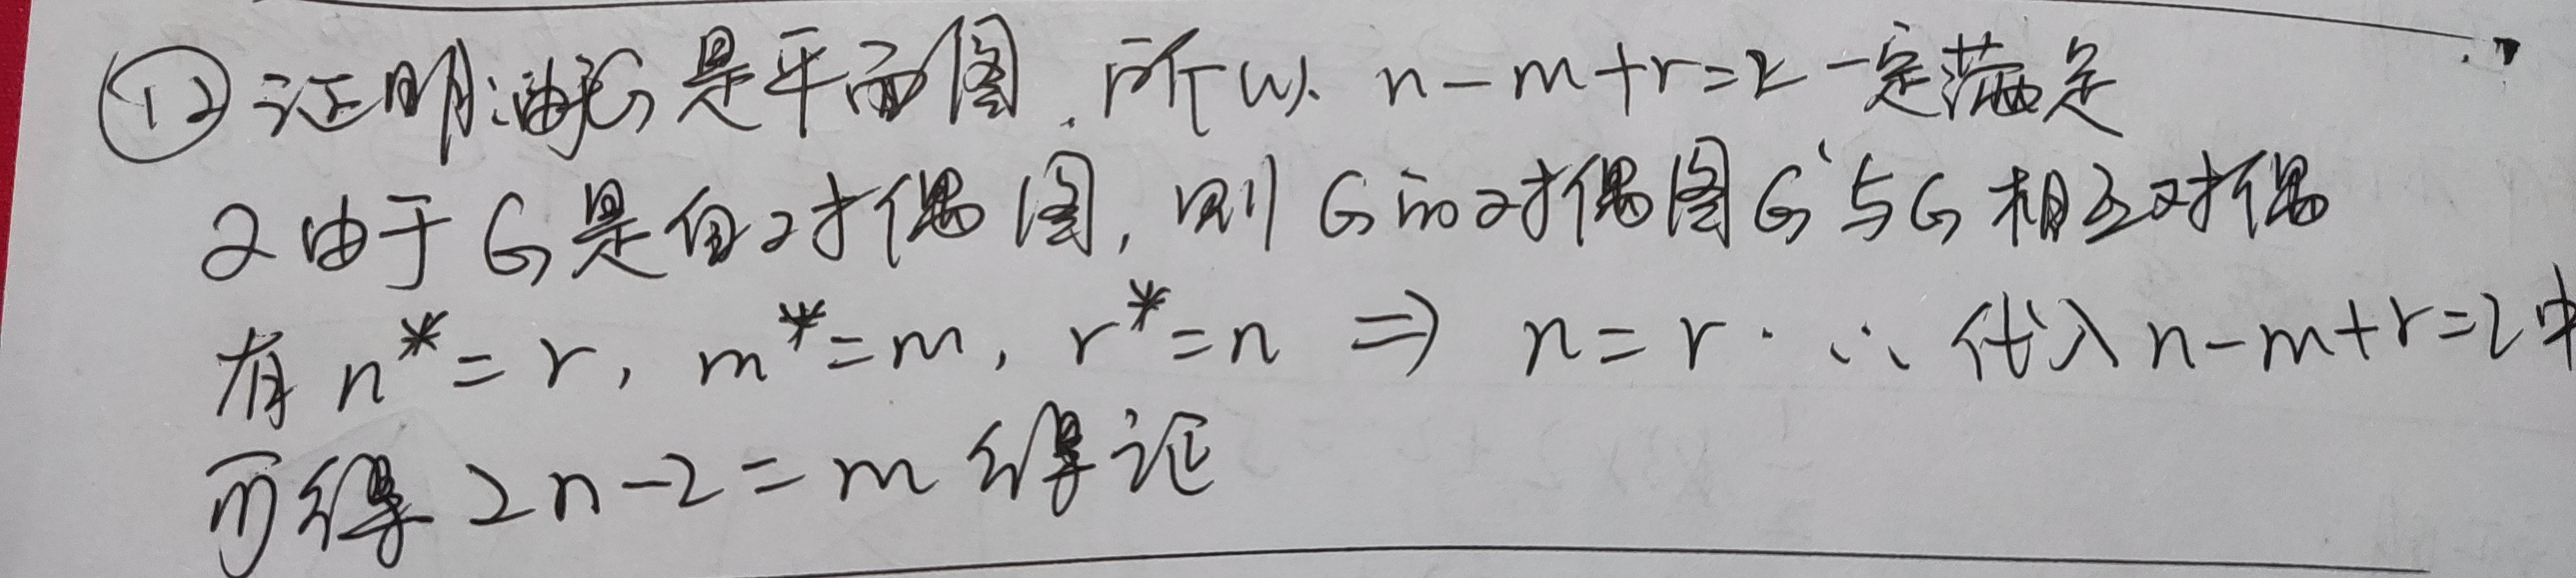 ⑫证明:由于G是平面图.所以 n-m+r=2一定满足
又由于G是自对偶图,则G的对偶图G'与G相互对偶
有 n*=r, m*=m, r*=n ⇒ n=r.∴代入n-m+r=2中
可得 2n-2=m 得证